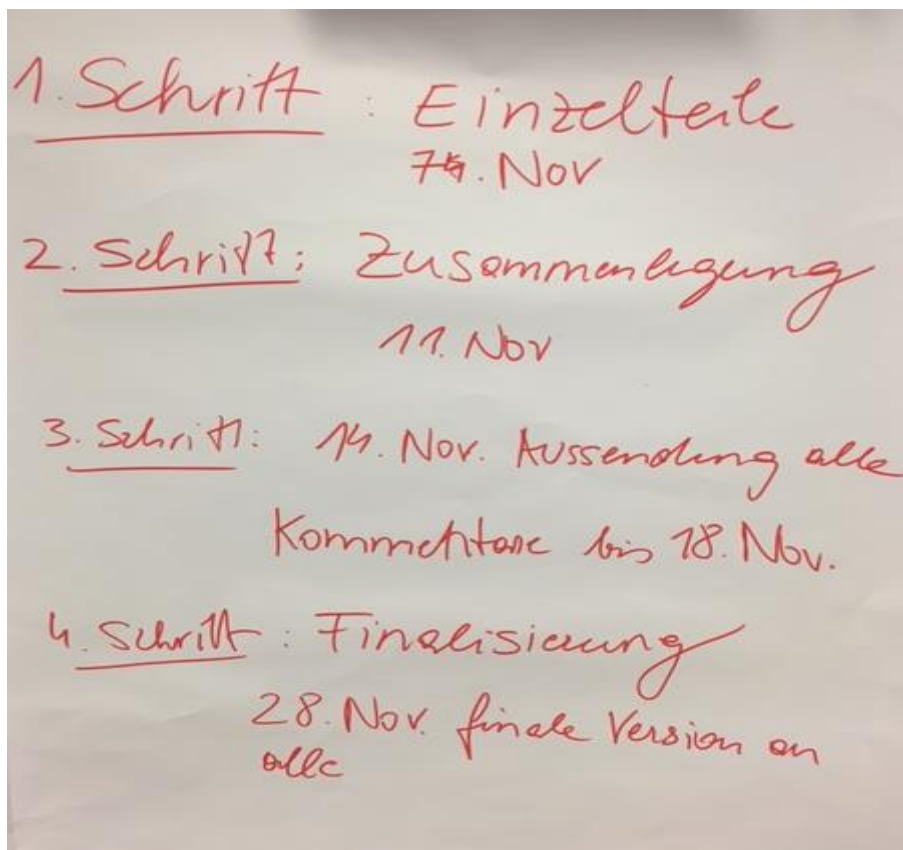 1. Schritt : Einzelteile
7. Nov
2. Schritt: Zusammenlegung
11. Nov
3. Schritt: 14. Nov. Aussendung alle
Kommentare bis 18. Nov.
4. Schritt : Finalisierung
28. Nov. finale Version an
alle